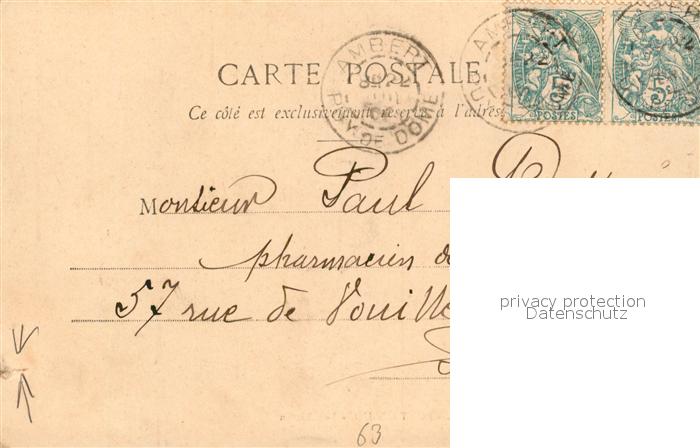 CARTE POSTALE
Ce côté est exclusivement réservé à l'adresse
AMBERT
PUY-DE-DOME
POSTES
5c POSTES
Monsieur Paul
pharmacien
57 rue de Vouillé
privacy protection
Datenschutz
63